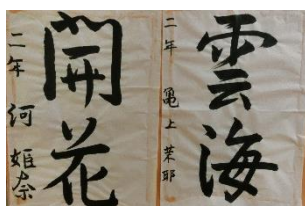 雲海
二年 亀上茉耶
開花
二年 河姫奈